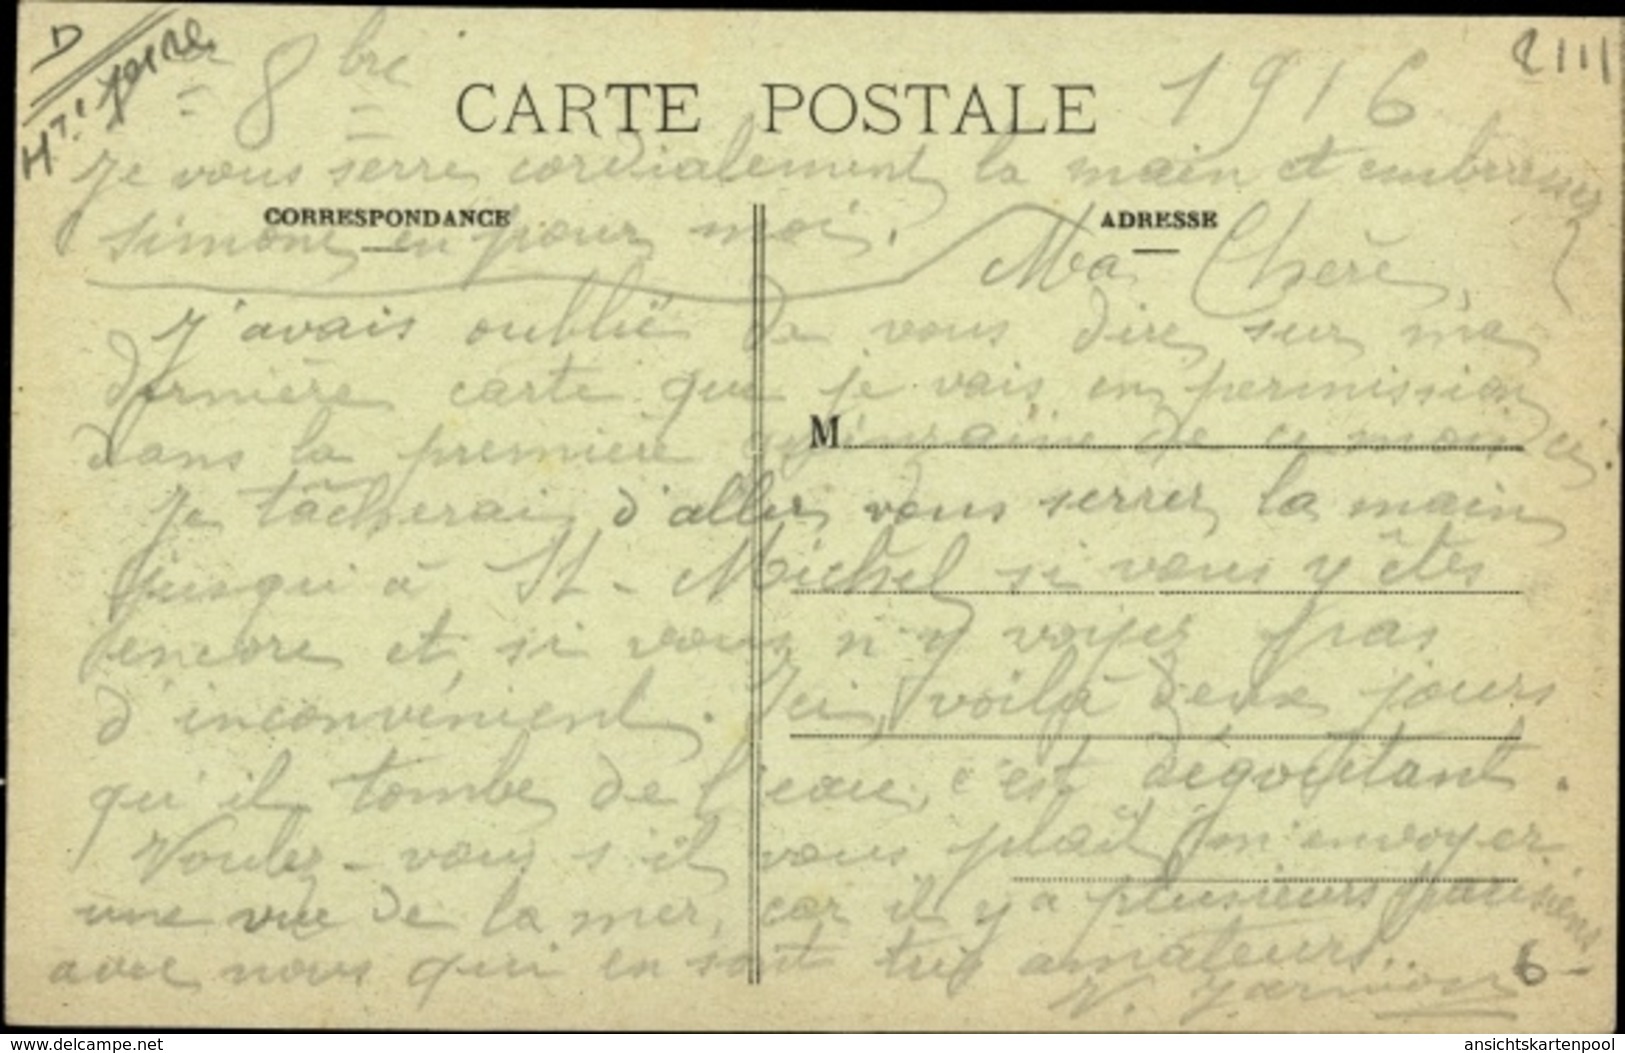 D
8bre 1916
2111
CARTE POSTALE
Je vous serre cordialement la main et embrassez
CORRESPONDANCE
ADRESSE
Simone en pour moi.
Ma Chère,
J'avais oublié de vous dire sur ma
dernière carte que je vais en permission
dans la première quinzaine de ce mois ci.
M
Je tâcherai d'aller vous serrer la main
jusqu'à St-Michel si vous y êtes
encore et si vous n'y voyez pas
d'inconvénient. Ici, voilà deux jours
qu'il tombe de l'eau, c'est dégoûtant.
Voulez-vous s'il vous plaît m'envoyer
une vue de la mer, car il y a plusieurs parisiens
avec nous qui en sont très amateurs.
6-
www.delcampe.net
ansichtskartenpool